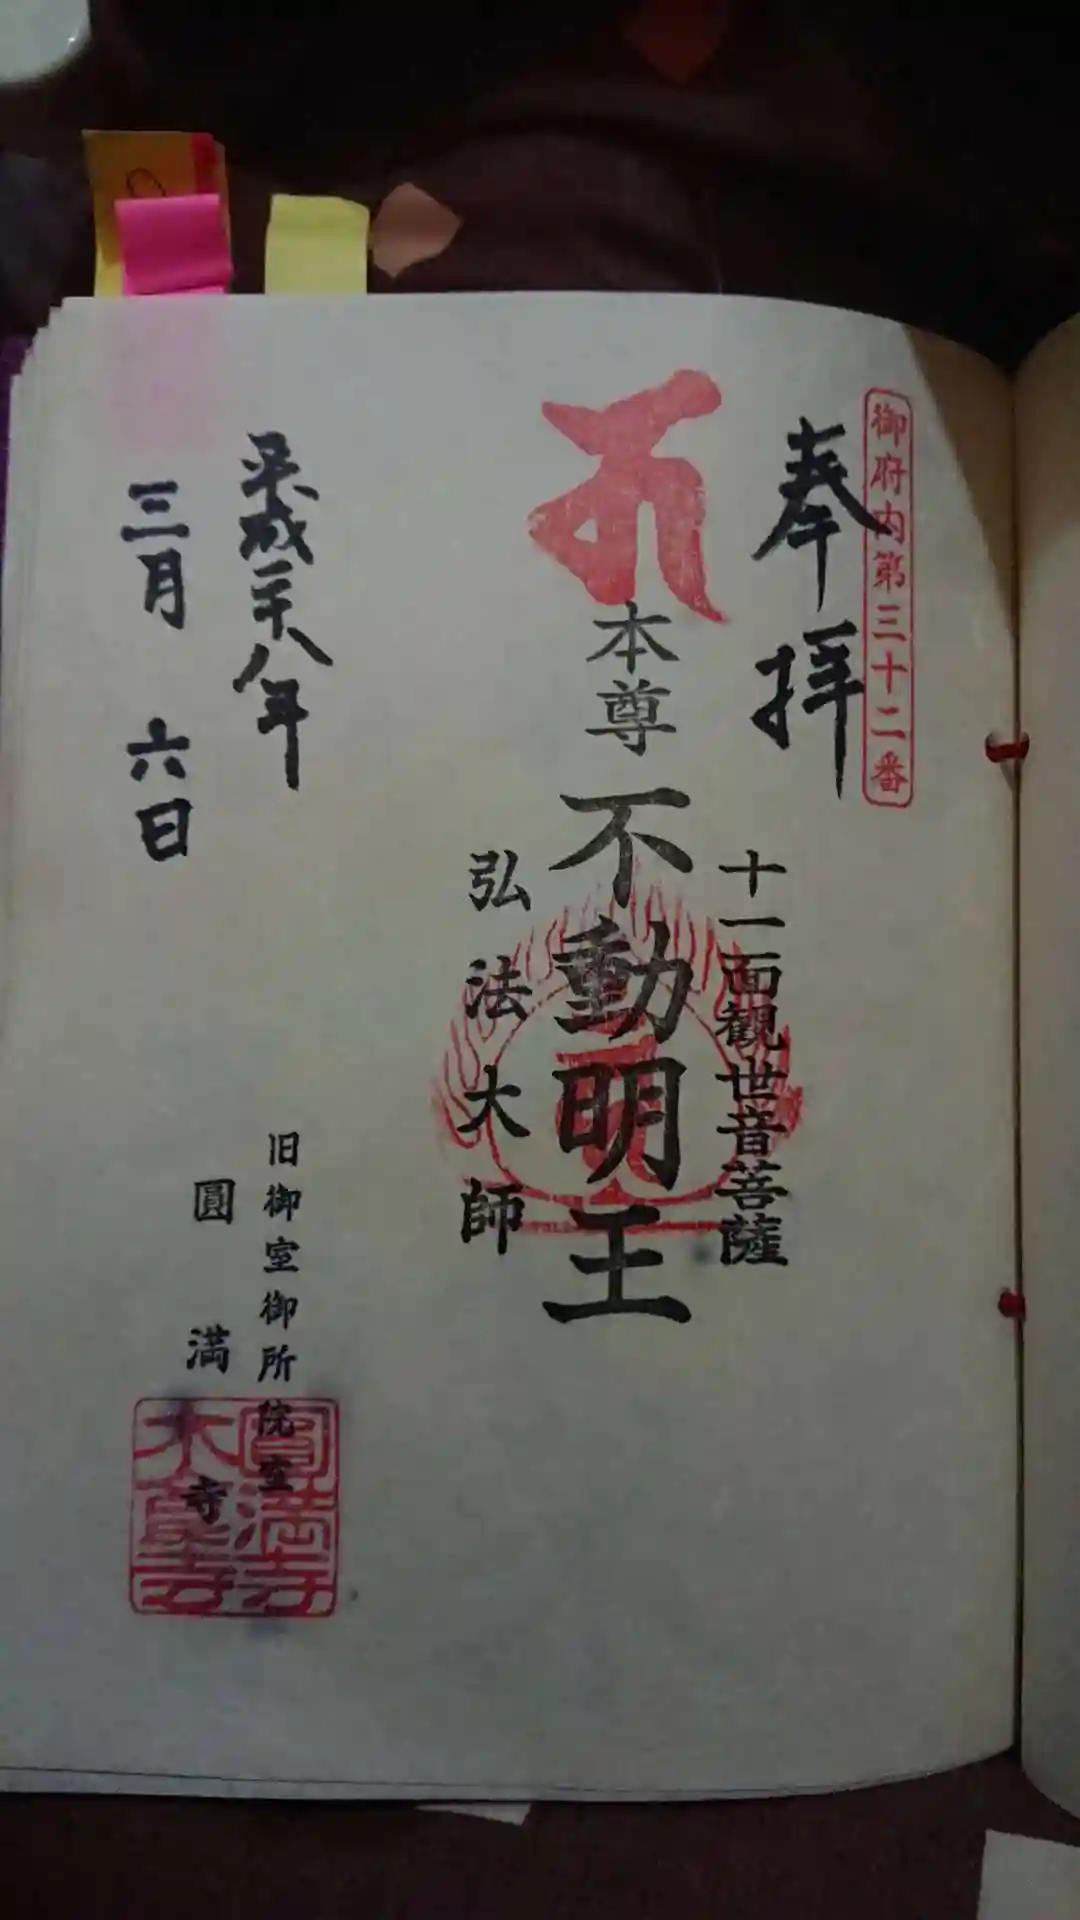 御府内第三十二番
奉拝
十一面観世音菩薩
本尊不動明王
弘法大師
平成二十八年
三月六日
旧御室御所院室
圓満寺